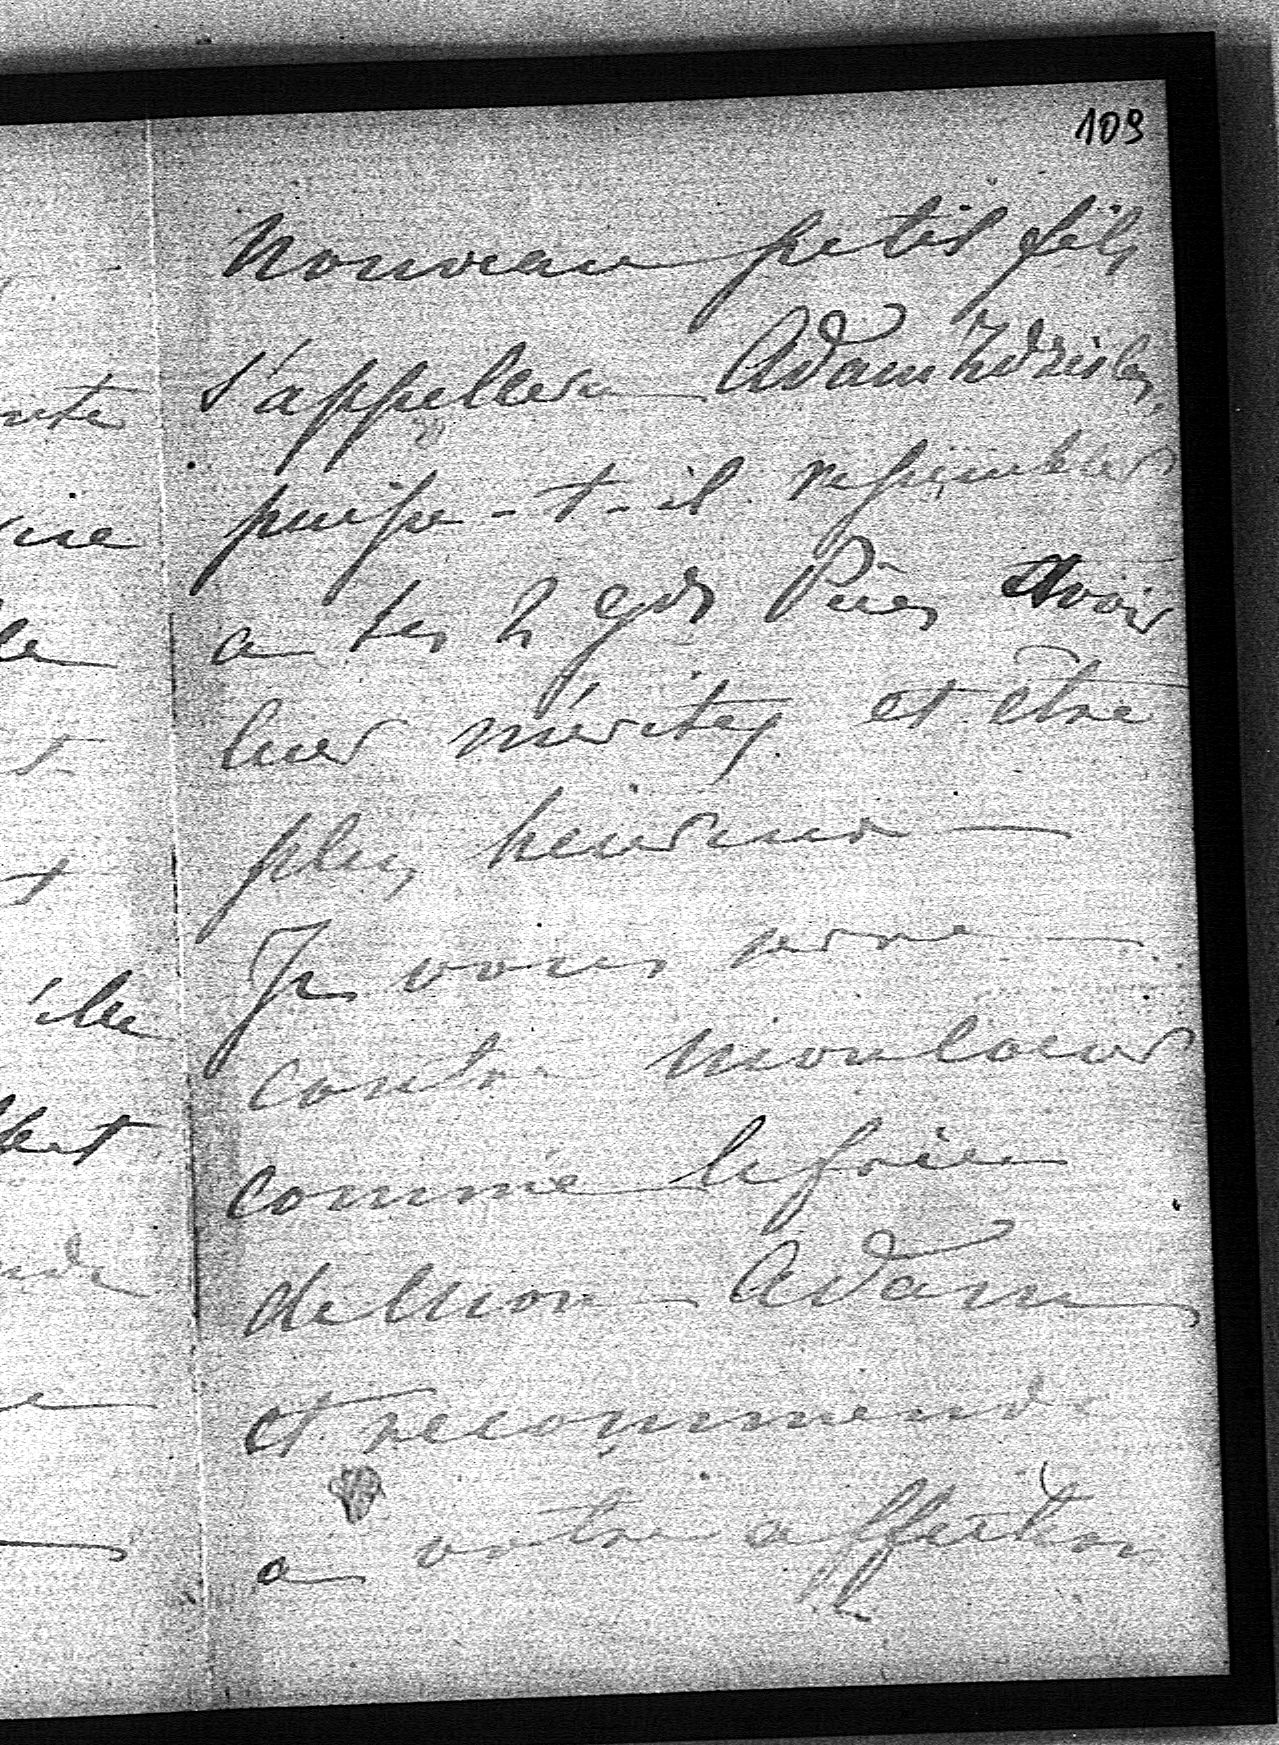 109
nouveau petit fils
s'appellera Adam Zdzislas,
puisse-t-il ressembler
a ses 2 gds Pères avoir
leur mérites et être
plus heureux —
Je vous serre
contre mon coeur
comme le frère
de mon Adam
et recommende
a votre affection